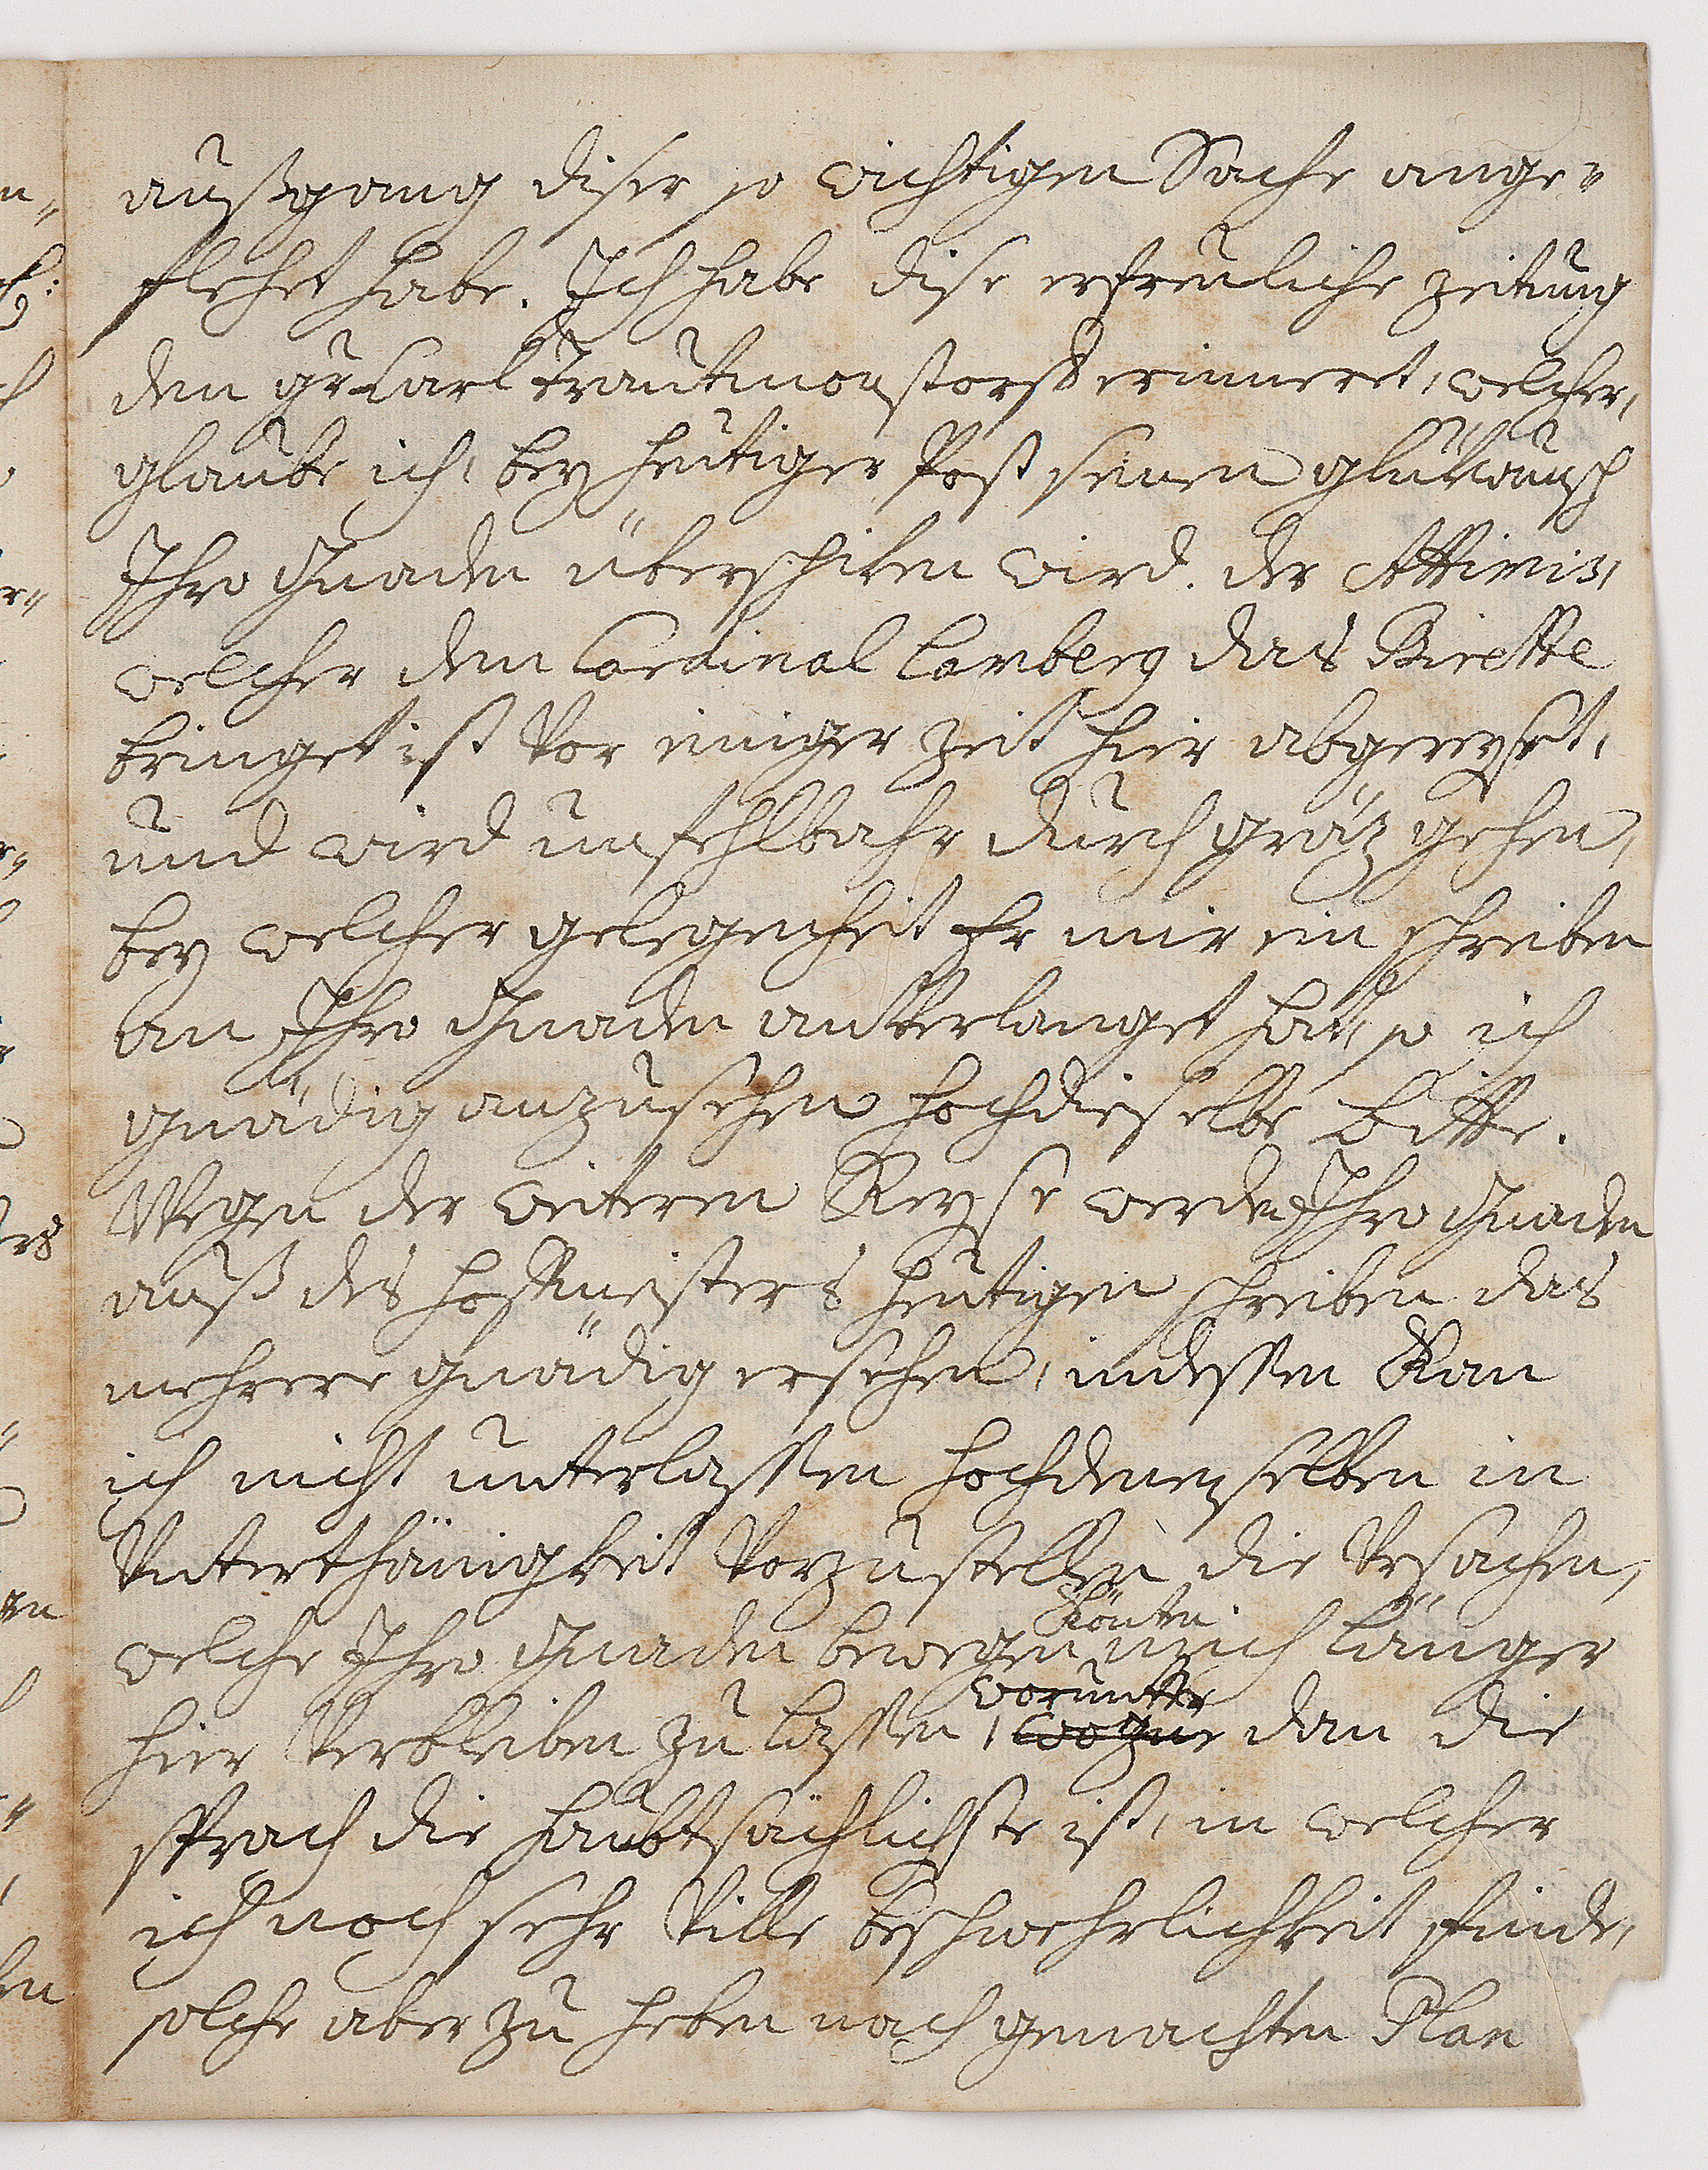 außgang diser so wichtigen Sache ange=
flehet habe. Ich habe dise erfreuliche zeitung
den gr Carl Trautmonstorff erinneret, welcher,
glaube ich, bey heutiger Post seinen glükwunsch
Ihro Gnaden überschiken wird. der Attimis,
welcher dem Cardinal Lamberg das Birette
bringet ist Vor einiger Zeit hier abgereyst,
und wird unfehlbahr durch gräz gehen,
bey welcher gelegenheit Er mir ein schreiben
an Ihro Gnaden anVerlanget hat, so ich
gnädig anzusehen hochdieselbe bitte.
Wegen der weiteren Reyse werden Ihro Gnaden
auß des hoffmeisters heutigen schreiben das
mehrere gnädig ersehen, indessen Kan
ich nicht unterlassen hochdenenselben in
Unterthänigkeit Vorzustellen die Ursachen,
welche Ihro Gnaden bewegen könten mich länger
hier Verbleiben zu lassen, worunter dan die
sprach die haubtsächlichste ist, in welcher
ich noch sehr Ville beschwehrlichkeit finde,
solche aber zu heben nach gemachten Plan